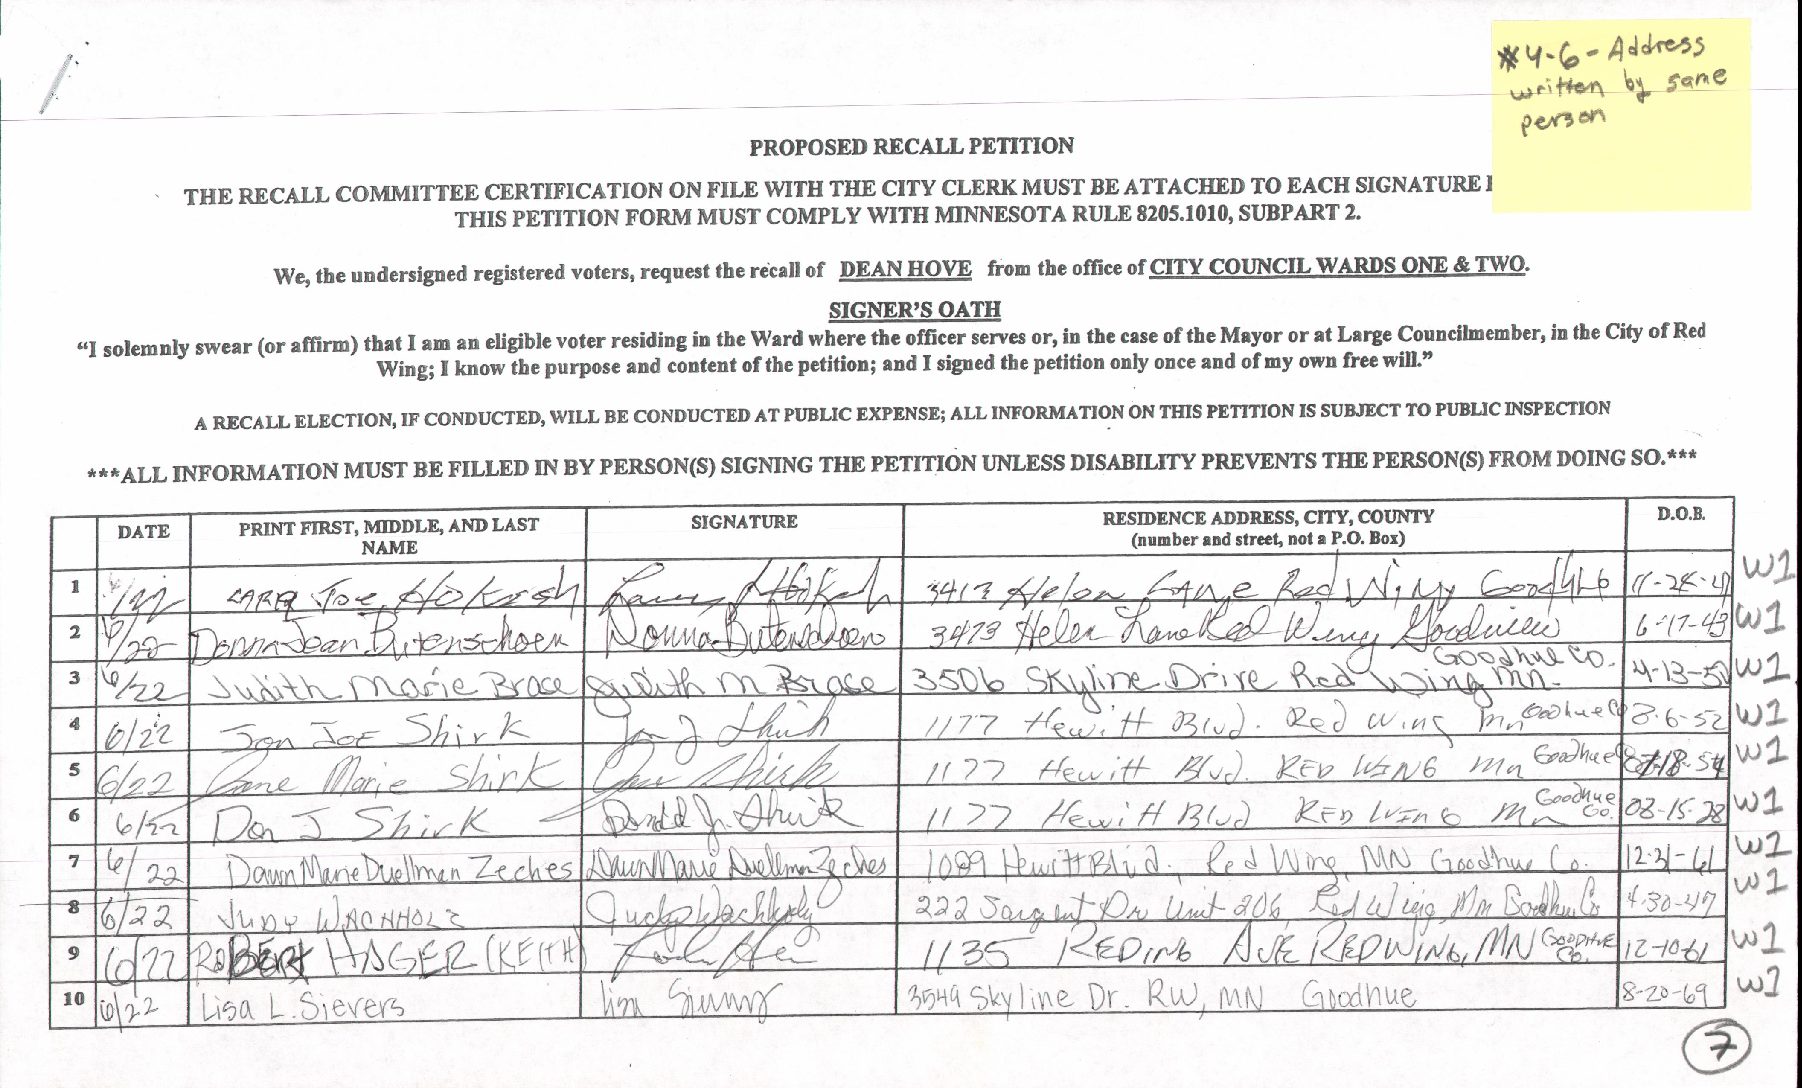 #4-6-Address
written by same
person
PROPOSED RECALL PETITION
THE RECALL COMMITTEE CERTIFICATION ON FILE WITH THE CITY CLERK MUST BE ATTACHED TO EACH SIGNATURE
THIS PETITION FORM MUST COMPLY WITH MINNESOTA RULE 8205.1010, SUBPART 2.
We, the undersigned registered voters, request the recall of DEAN HOVE from the office of CITY COUNCIL WARDS ONE & TWO.
SIGNER'S OATH
"I solemnly swear (or affirm) that I am an eligible voter residing in the Ward where the officer serves or, in the case of the Mayor or at Large Councilmember, in the City of Red
Wing; I know the purpose and content of the petition; and I signed the petition only once and of my own free will."
A RECALL ELECTION, IF CONDUCTED, WILL BE CONDUCTED AT PUBLIC EXPENSE; ALL INFORMATION ON THIS PETITION IS SUBJECT TO PUBLIC INSPECTION
***ALL INFORMATION MUST BE FILLED IN BY PERSON(S) SIGNING THE PETITION UNLESS DISABILITY PREVENTS THE PERSON(S) FROM DOING SO.***
DATE PRINT FIRST, MIDDLE, AND LAST SIGNATURE RESIDENCE ADDRESS, CITY, COUNTY D.O.B.
NAME (number and street, not a P.O. Box)
1 6/22 Joe 3413 Helen Lane Red Wing W1
2 6/22 Donna Jean Butenschoen Donna Butenschoen 3473 Helen Lane Red Wing 6-17-43 W1
Goodhue Co.
3 6/22 Judith Marie Brace Judith M Brace 3506 Skyline Drive Red Wing MN. W1
4 6/22 Jon Joe Shirk Jon J Shirk 1177 Hewitt Blvd. Red Wing Mn Goodhue Co 8-6-52 W1
5 6/22 Marie Shirk Shirk 1177 Hewitt Blvd. RED WING Mn Goodhue W1
6 6/22 Don J Shirk Donald J. Shirk 1177 Hewitt Blvd RED WING Mn Goodhue Co. 03-15-28 W1
7 6/22 Dawn Marie Duellman Zeches Dawn Marie Duellman Zeches 1089 Hewitt Blvd., Red Wing, MN Goodhue Co. 12-31-61 W1
8 6/22 JUDY WACHHOLZ Judy Wachholz 222 Sargent Dr Unit 206, Red Wing, Mn Goodhue Co 4-30-47 W1
9 6/22 ROBERT HAGER (KEITH) 1135 REDING AVE RED WING, MN GOODHUE CO. 12-10-61 W1
10 6/22 Lisa L. Sievers Lisa 3549 Skyline Dr. RW, MN Goodhue 8-20-69 W1
7